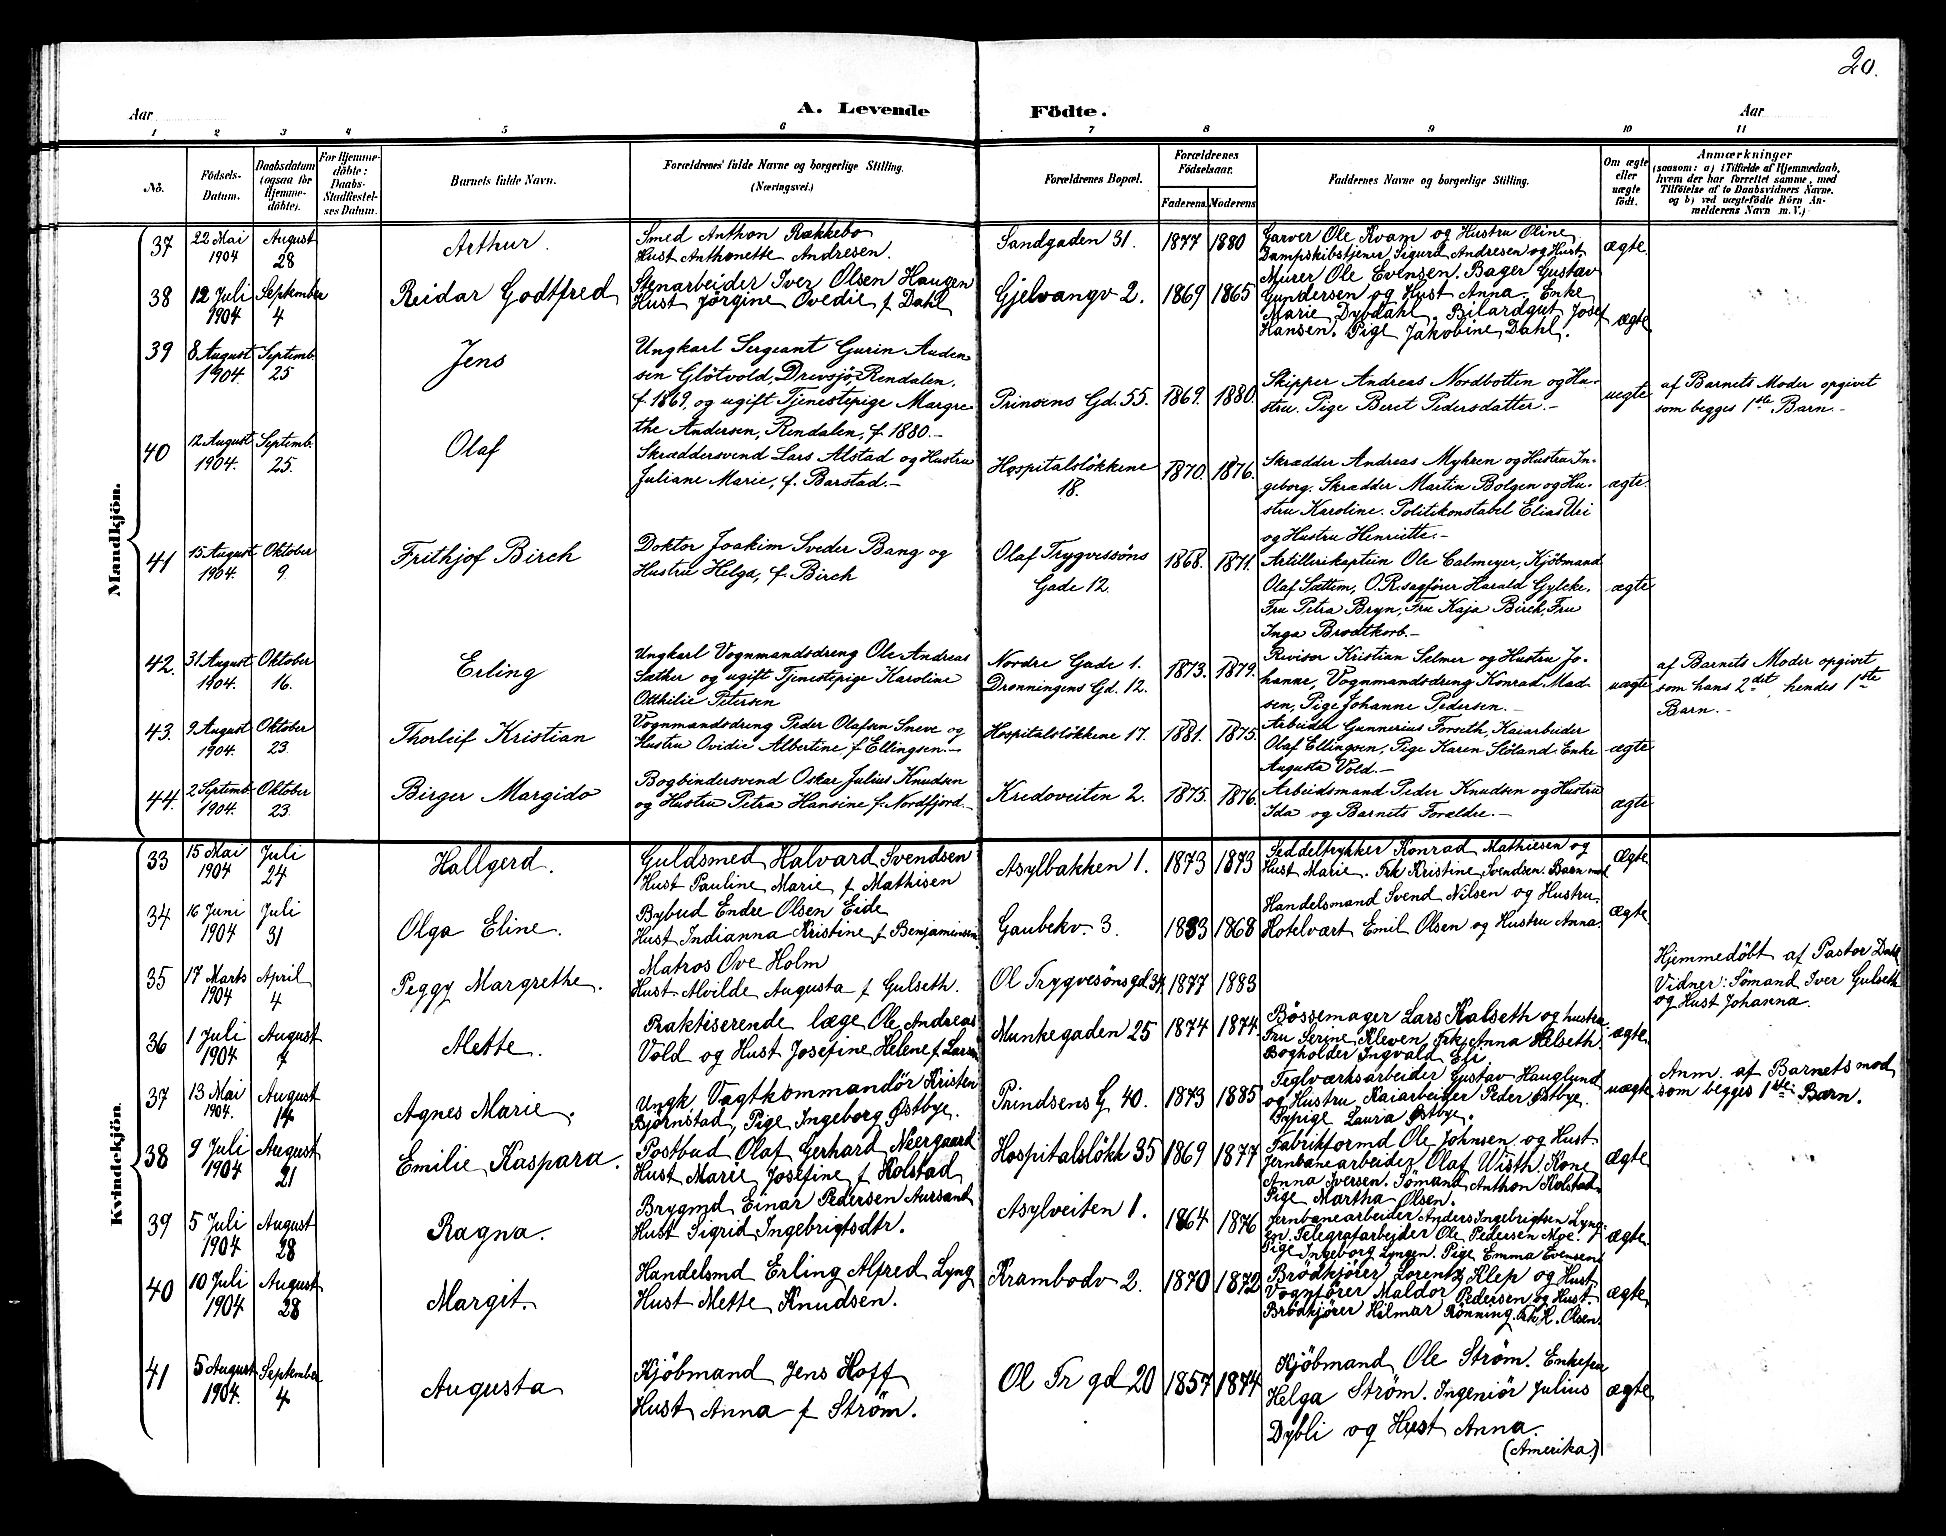 20.
Aar
A. Levende Födte.
Aar
1 2 3 4 5 6 7 8 9 10 11
No.
Födsels-
Datum.
Daabsdatum
(ogsaa for
Hjemme-
döbte).
For Hjemme-
döbte:
Daabs-
Stadfæstel-
ses Datum.
Barnets fulde Navn.
Forældrenes' fulde Navne og borgerlige Stilling.
(Næringsvei.)
Forældrenes Bopæl.
Forældrenes
Födselsaar.
Faderens. Moderens.
Faddernes Navne og borgerlige Stilling.
Om ægte
eller
uægte
födt.
Anmærkninger
(saasom: a) i Tilfælde af Hjemmedaab,
hvem der har forrettet samme, med
Tilföielse af to Daabsvidners Navne.
og b) ved uægtefödte Börn An-
melderens Navn m. V.)
Mandkjön.
37
22 Mai
1904
August
28
Arthur.
Smed Anthon Rækkebo
Hust Anthonette Andresen.
Sandgaden 31.
1877 1880
Garver Ole Kvam og Hustru Oline
Dampskibstjener Sigurd Andresen og Hust
ægte
38
12 Juli
1904
September
4
Reidar Godtfred
Stenarbeider Iver Olsen Haugen
Hust Jörgine Ovedie f Dahl
Gjelvangv 2.
1869 1865
Murer Ole Evensen. Bager Gustav
Gundersen og Hust Anna. Enke
Marie Dybdahl. Bilardgut Josef
Hansen. Pige Jakobine Dahl.
ægte
39
8 August
1904.
Septemb.
25
Jens
Ungkarl Sergeant Gurin Auden
sen Glötvold, Drevsjö, Rendalen,
f. 1869, og ugift Tjenestepige Margre
the Andersen, Rendalen, f. 1880.—
Prinsens Gd. 55.
1869. 1880.
Skipper Andreas Nordbotten og Hu-
stru. Pige Beret Pedersdatter.—
uegte
af Barnets Moder opgivet
som begges 1ste Barn.—
40
12 August
1904.
Septemb.
25.
Olaf
Skræddersvend Lars Alstad og Hustru
Juliane Marie, f. Barstad.—
Hospitalslökkene
18.
1870. 1876.
Skrædder Andreas Myhren og Hustru In-
geborg. Skrædder Martin Bolgen og Hu-
stru Karoline. Politikonstabel Elias Uri
og Hustru Henriette.—
ægte.
41
15 August
1904.
Oktober
9.
Frithjof Birch
Doktor Joakim Sveder Bang og
Hustru Helga, f. Birch
Olaf Trygvessöns
Gade 12.
1868. 1871.
Artillerikaptein Ole Calmeyer, Kjöbmand
Olaf Sættem, O.R.sagförer Harald Gylcke,
Fru Petra Bryn, Fru Kaja Birch, Fru
Inga Brodtkorb.—
ægte
42.
31 August
1904.
Oktober
16.
Erling
Ungkarl Vognmandsdreng Ole Andreas
Sæther og ugift Tjenestepige Karoline
Otthilie Petersen
Nordre Gade 1.
Dronningens Gd. 12.
1873. 1879.
Revisor Kristian Selmer og Hustru Jo-
hanne, Vognmandsdreng Konrad Mad-
sen, Pige Johanne Pedersen.—
uægte
af Barnets Moder opgivet
som hans 2det, hendes 1ste
Barn.—
43.
9 August
1904.
Oktober
23.
Thorleif Kristian
Vognmandsdreng Peder Olafsen Sneve og
Hustru Ovidie Albertine f Ellingsen.—
Hospitalslökkene 17.
1881. 1875.
Arbeider Gunnerius Forseth, Kaiarbeider
Olaf Ellingsen, Pige Karen Stöland Enke
Augusta Vold.—
ægte
44.
2 Septemb.
1904.
Oktober
23.
Birger Margido
Bogbindersvend Oskar Julius Knudsen
og Hustru Petra Hansine f. Nordfjord.—
Kredoveiten 2.
1875. 1876.
Arbeidsmand Peder Knudsen og Hustru
Ida og Barnets Forældre.—
ægte
Kvindekjön.
33
15 Mai
1904
Juli
24
Hallgerd.
Guldsmed Halvard Svendsen
Hust Pauline Marie f Mathisen
Asylbakken 1.
1873 1873
Seddeltrykker Konrad Mathiesen og
Hust Marie. Frk Kristine Svendsen. Barn mod
Ægte
34
16 Juni
1904
Juli
31
Olga Eline.
Bybud Endre Olsen Eide
Hust Indianna Kristine f Benjaminsen
Gaubekv. 3.
1883 1868
Handelsmand Svend Nilsen og Hustru.
Hotelvært Emil Olsen og Hustru Anna.
Ægte
35
17 Marts
1904
April
4
Peggy Margrethe.
Matros Ove Holm
Hust Alvilde Augusta f Gulseth.
Ol Trygvesönsgd 34
1877 1883
Hjemmedöbt af Pastor Dahl
Vidner: Sömand Iver Gulseth
og Hust Johanna.
36
1 Juli
1904
August
7
Mette.
Praktiserende læge Ole Andreas
Vold og Hust Josefine Helene f Larsen
Munkegaden 25
1874 1874
Bössemager Lars Kalseth og hustru.
Fru Serine Kleven, Frk Anna Helseth.
Bogholder Ingvald Eli
ægte
37
13 Mai
1904.
August
14
Agnes Marie.
Ungk Vagtkommandör Kristen
Bjørnstad, Pige Ingeborg Østbye.
Prindsens G 40.
1873 1885
Teglværksarbeider Gustav Hauglund
og Hustru Kaiarbeider Peder Østbye.
Sypige Laura Østbye.
uægte
Anm. af Barnets mod
som begges 1ste Barn.
38
9 Juli
1904
August
21
Emilie Kaspara.
Postbud Olaf Gerhard Neergaard
Hust Marie Josefine f Kolstad
Hospitalslökk 35
1869 1877
Fabrikformd Ole Johnsen og Hust
Jernbanearbeider Olaf Wisth, Kone
Anna Iversen. Sömand Anthon Kolstad.
Pige Martha Olsen.
ægte
39
5 Juli
1904
August
28
Ragna.
Brygmd Einar Pedersen Aursand
Hust Sigrid Ingebrigtsdtr.
Asylveiten 1.
1864 1876
Jernbanearbeider Anders Ingebrigtsen Lyng-
en. Telegrafarbejder Ole Pedersen Moe.
Pige Ingeborg Lyngen. Pige Emma Evensen
ægte
40
10 Juli
1904
August
28
Margit.
Handelsmd Erling Alfred Lyng
Hust Mette Knudsen.
Krambodv 2.
1870 1872
Brödkjörer Lorentz Klep og Hust
Vognfører Maldor Pedersen og Hust.
Brödkjörer Hilmar Rønning. Frk H. Olsen.
ægte
41
5 August
1904.
September
4
Augusta
Kjöbmand Jens Hoff
Hust Anna f Strøm.
Ol Tr gd 20
1857 1874
Kjöbmand Ole Strøm. Enkefru
Helga Strøm. Ingeniör Julius
Dybli og Hust Anna.
(Amerika.)
ægte